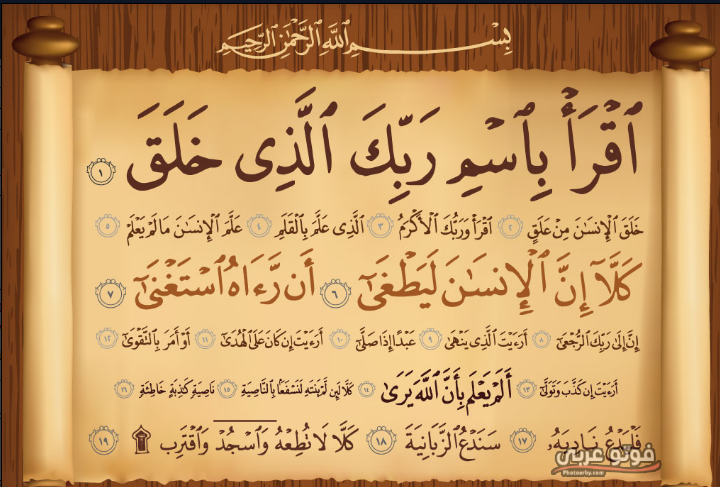 بِسْمِ ٱللَّهِ ٱلرَّحْمَٰنِ ٱلرَّحِيمِ
ٱقْرَأْ بِٱسْمِ رَبِّكَ ٱلَّذِى خَلَقَ ١
خَلَقَ ٱلْإِنسَٰنَ مِنْ عَلَقٍ ٢ ٱقْرَأْ وَرَبُّكَ ٱلْأَكْرَمُ ٣ ٱلَّذِى عَلَّمَ بِٱلْقَلَمِ ٤ عَلَّمَ ٱلْإِنسَٰنَ مَا لَمْ يَعْلَمْ ٥
كَلَّآ إِنَّ ٱلْإِنسَٰنَ لَيَطْغَىٰٓ ٦ أَن رَّءَاهُ ٱسْتَغْنَىٰٓ ٧
إِنَّ إِلَىٰ رَبِّكَ ٱلرُّجْعَىٰٓ ٨ أَرَءَيْتَ ٱلَّذِى يَنْهَىٰ ٩ عَبْدًا إِذَا صَلَّىٰٓ ١٠ أَرَءَيْتَ إِن كَانَ عَلَى ٱلْهُدَىٰٓ ١١ أَوْ أَمَرَ بِٱلتَّقْوَىٰٓ ١٢
أَرَءَيْتَ إِن كَذَّبَ وَتَوَلَّىٰٓ ١٣ أَلَمْ يَعْلَم بِأَنَّ ٱللَّهَ يَرَىٰ ١٤ كَلَّا لَئِن لَّمْ يَنتَهِ لَنَسْفَعًۢا بِٱلنَّاصِيَةِ ١٥ نَاصِيَةٍ كَٰذِبَةٍ خَاطِئَةٍ ١٦
فَلْيَدْعُ نَادِيَهُۥ ١٧ سَنَدْعُ ٱلزَّبَانِيَةَ ١٨ كَلَّا لَا تُطِعْهُ وَٱسْجُدْ وَٱقْتَرِب ۩ ١٩
فوتو عربي
Photoarby.com